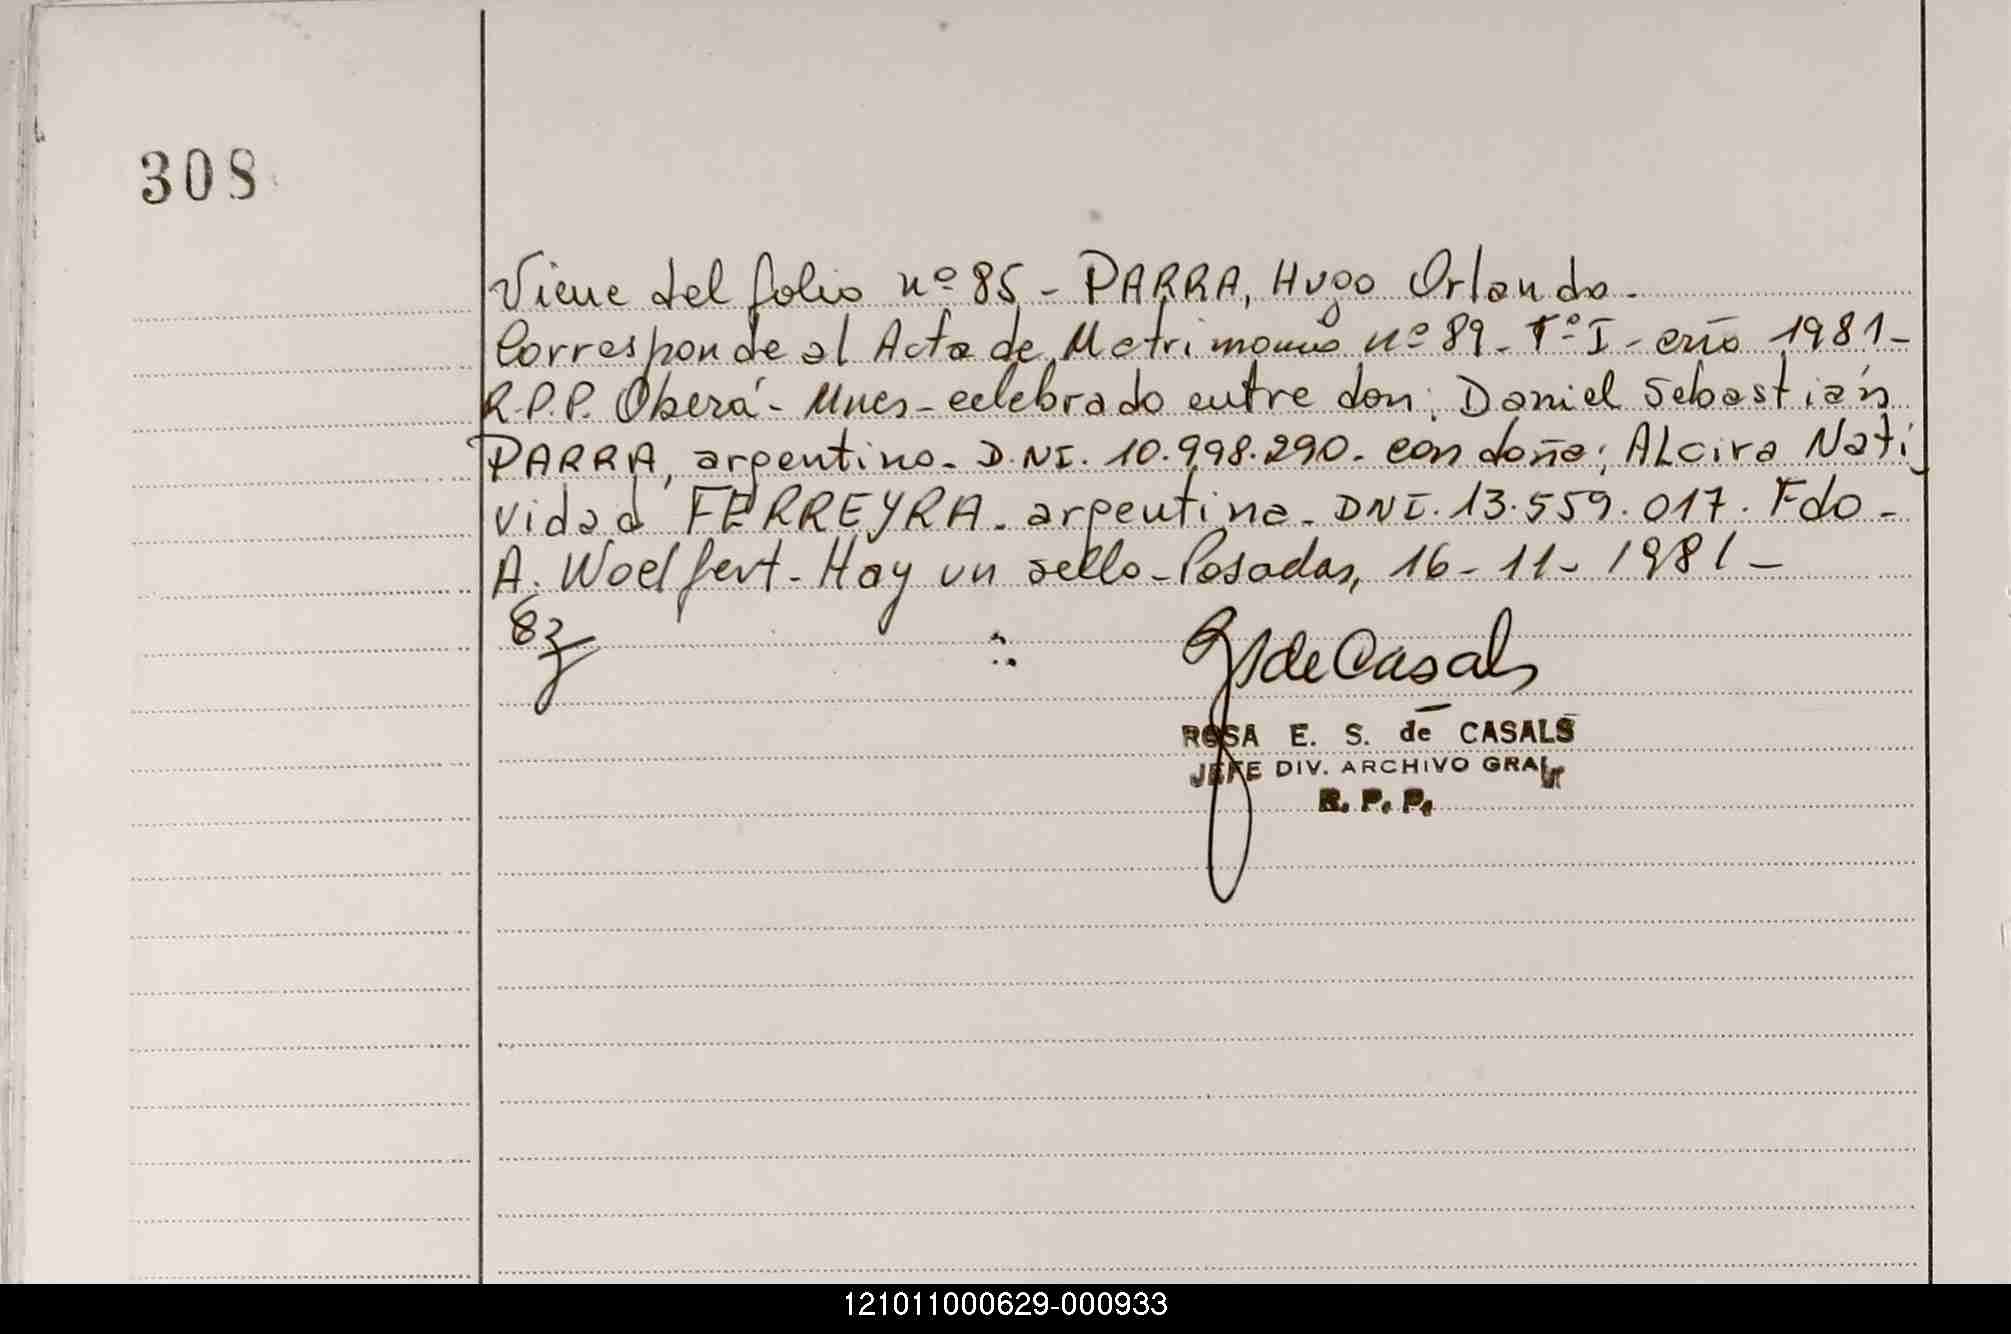 308
Viene del folio nº 85 - PARRA, Hugo Orlando.
Corresponde al Acta de Matrimonio nº 89 - Tº I - año 1981 -
R.P.P. Oberá - Mnes - celebrado entre don: Daniel Sebastián
PARRA, argentino - D.NI. 10.998.290 - con doña: ALcira Nati
vidad FERREYRA - argentina - DNI. 13.559.017. Fdo -
A. Woelfert - Hay un sello - Posadas, 16 - 11 - 1981 -
de Casals
ROSA E. S. de CASALS
JEFE DIV. ARCHIVO GRAL
R. P. P.
121011000629-000933